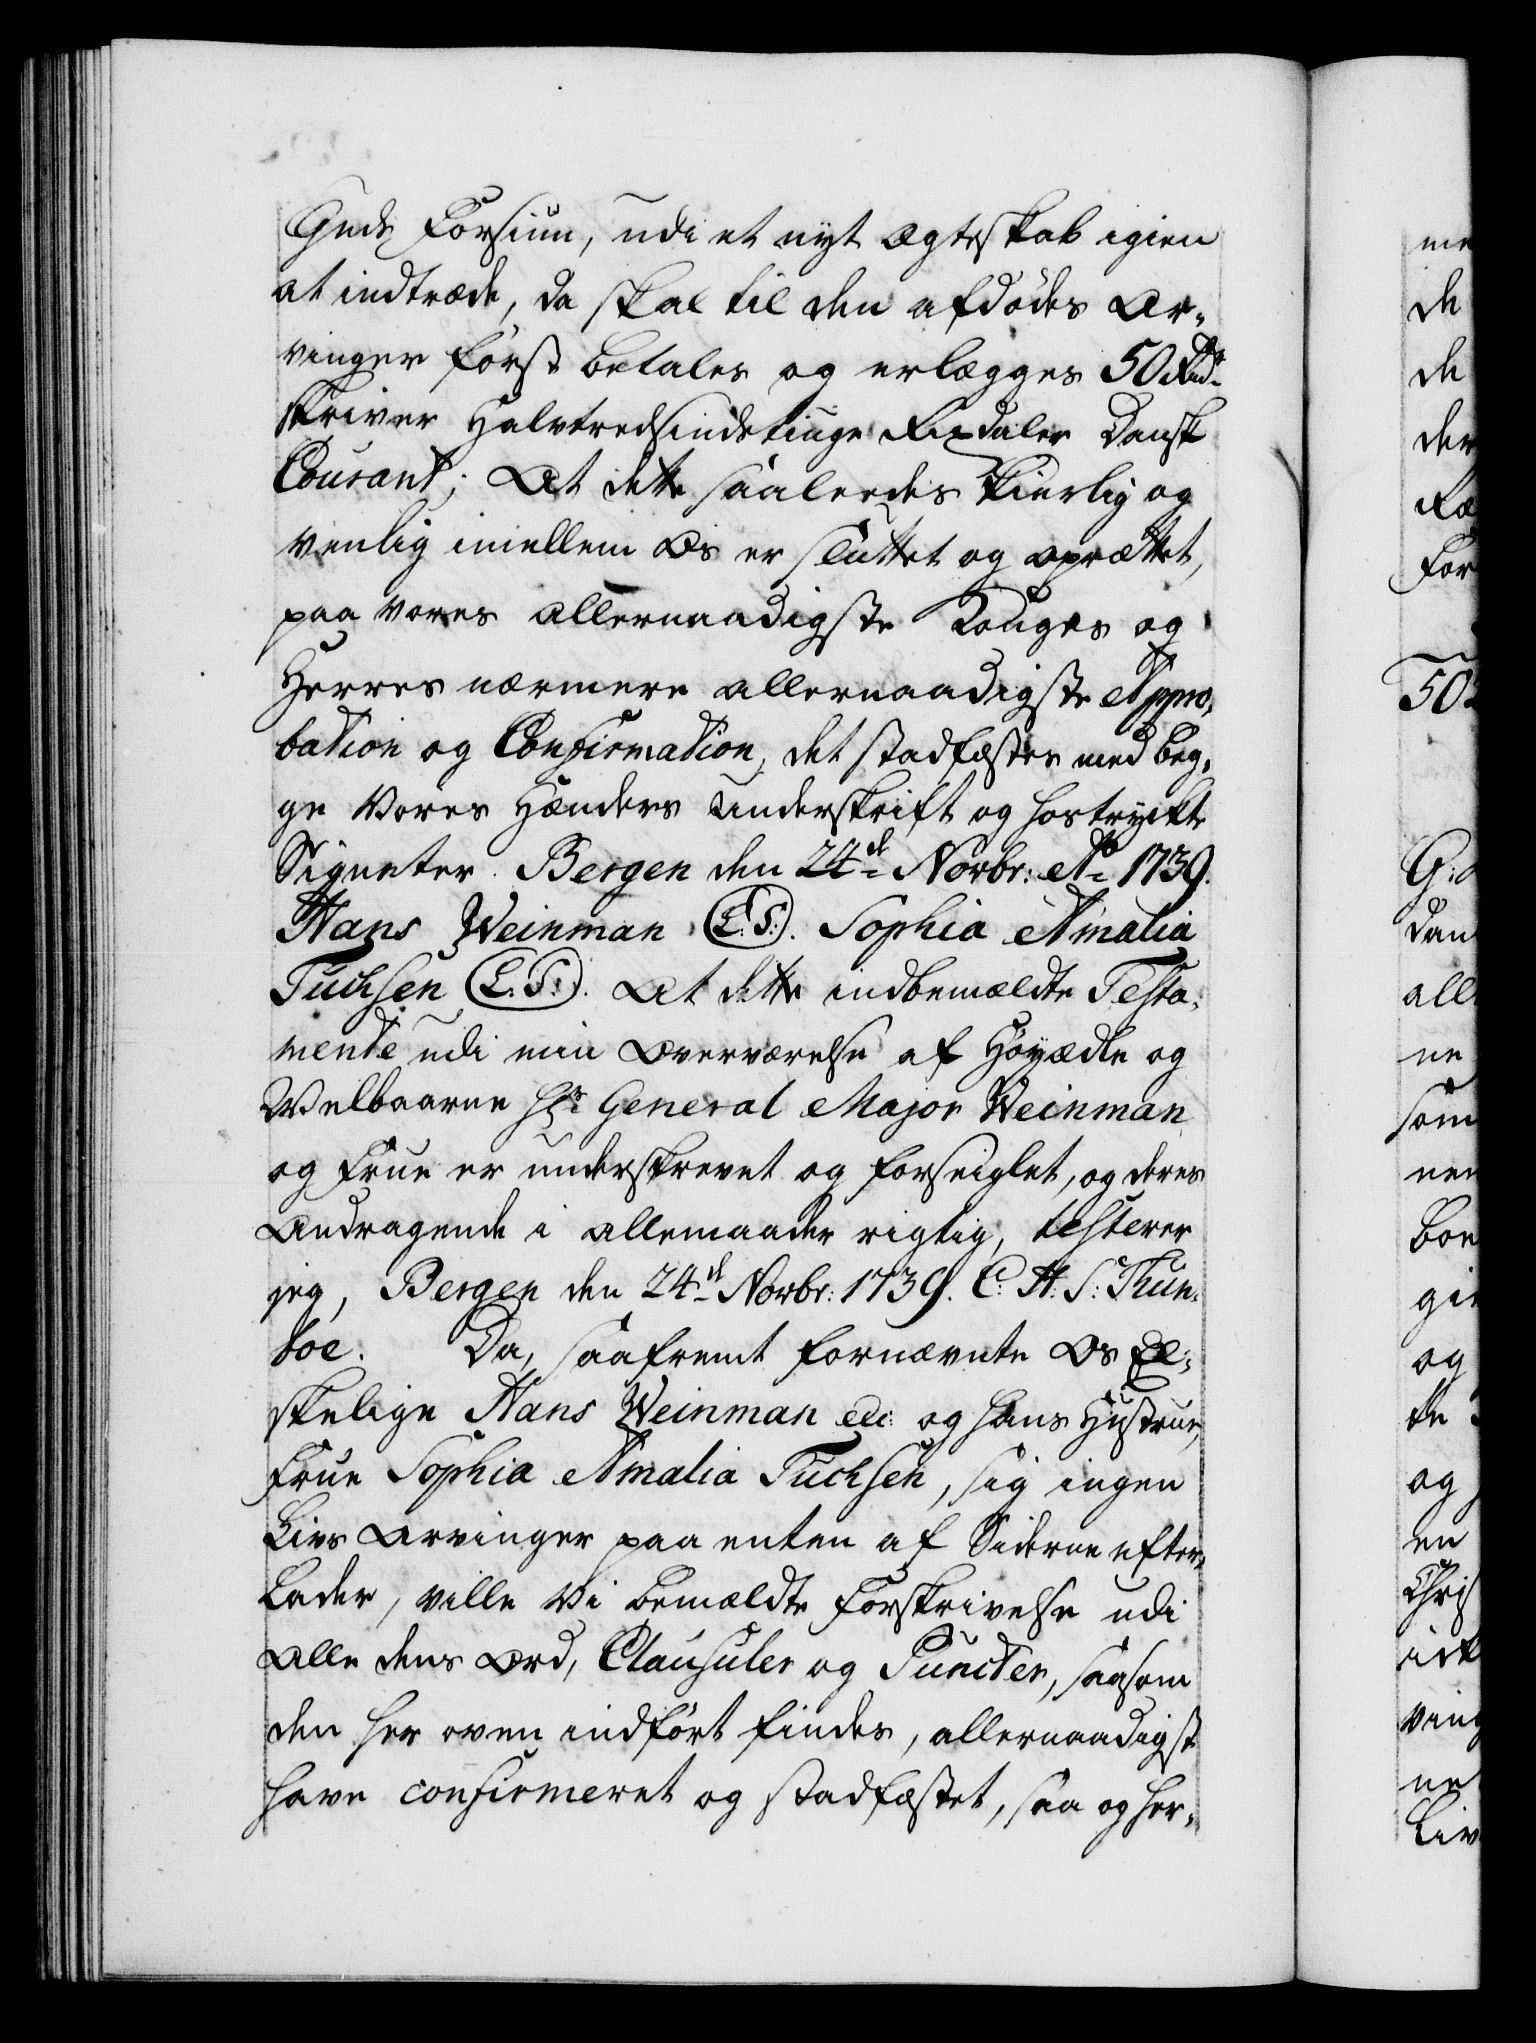 Guds Forsiun, udi et nyt Ægteskab igien
at indtræde, da skal til den afdødes Ar-
vinger først betales og erlægges 50 Rdr
skriver Halvtredsindstiuge Rixdaler Dansk
Courant; At dette saaledes kierlig og
venlig imellem Os er sluttet og oprættet,
paa vores allernaadigste Konges og
Herres nærmere allernaadigste Appro-
bation og Confirmation, det stadfæstes med beg-
ge Vores Hænders Underskrift og hostrykte
Signeter. Bergen den 24de Novbr: Ao 1739.
Hans Weinman (L.S.). Sophia Amalia
Tuchsen (L.S.). At dette indbemældte Testa-
mente udi min Overværelse af Høyædle og
Welbaarne Hr. General Major Weinman
og Frue er underskrevet og forseiglet, og deres
Andragende i allemaader rigtig, testerer
jeg, Bergen den 24de Novbr: 1739. C: H: S: Thun-
boe. Da, saafremt fornævnte Os El-
skelige Hans Weinman etc: og hans Hustrue,
Frue Sophia Amalia Tuchsen, sig ingen
Livs Arvinger paa enten af Siderne efter-
lader, ville Vi bemældte Forskrivelse udi
alle dens Ord, Clausuler og Puncter, saasom
den her oven indført findes, allernaadigst
have confirmeret og stadfæstet, saa og her-
me
de
de
der
For
G:
Dan
all
ne
som
nen
og
og
en
Chris
ving
ne
Liv